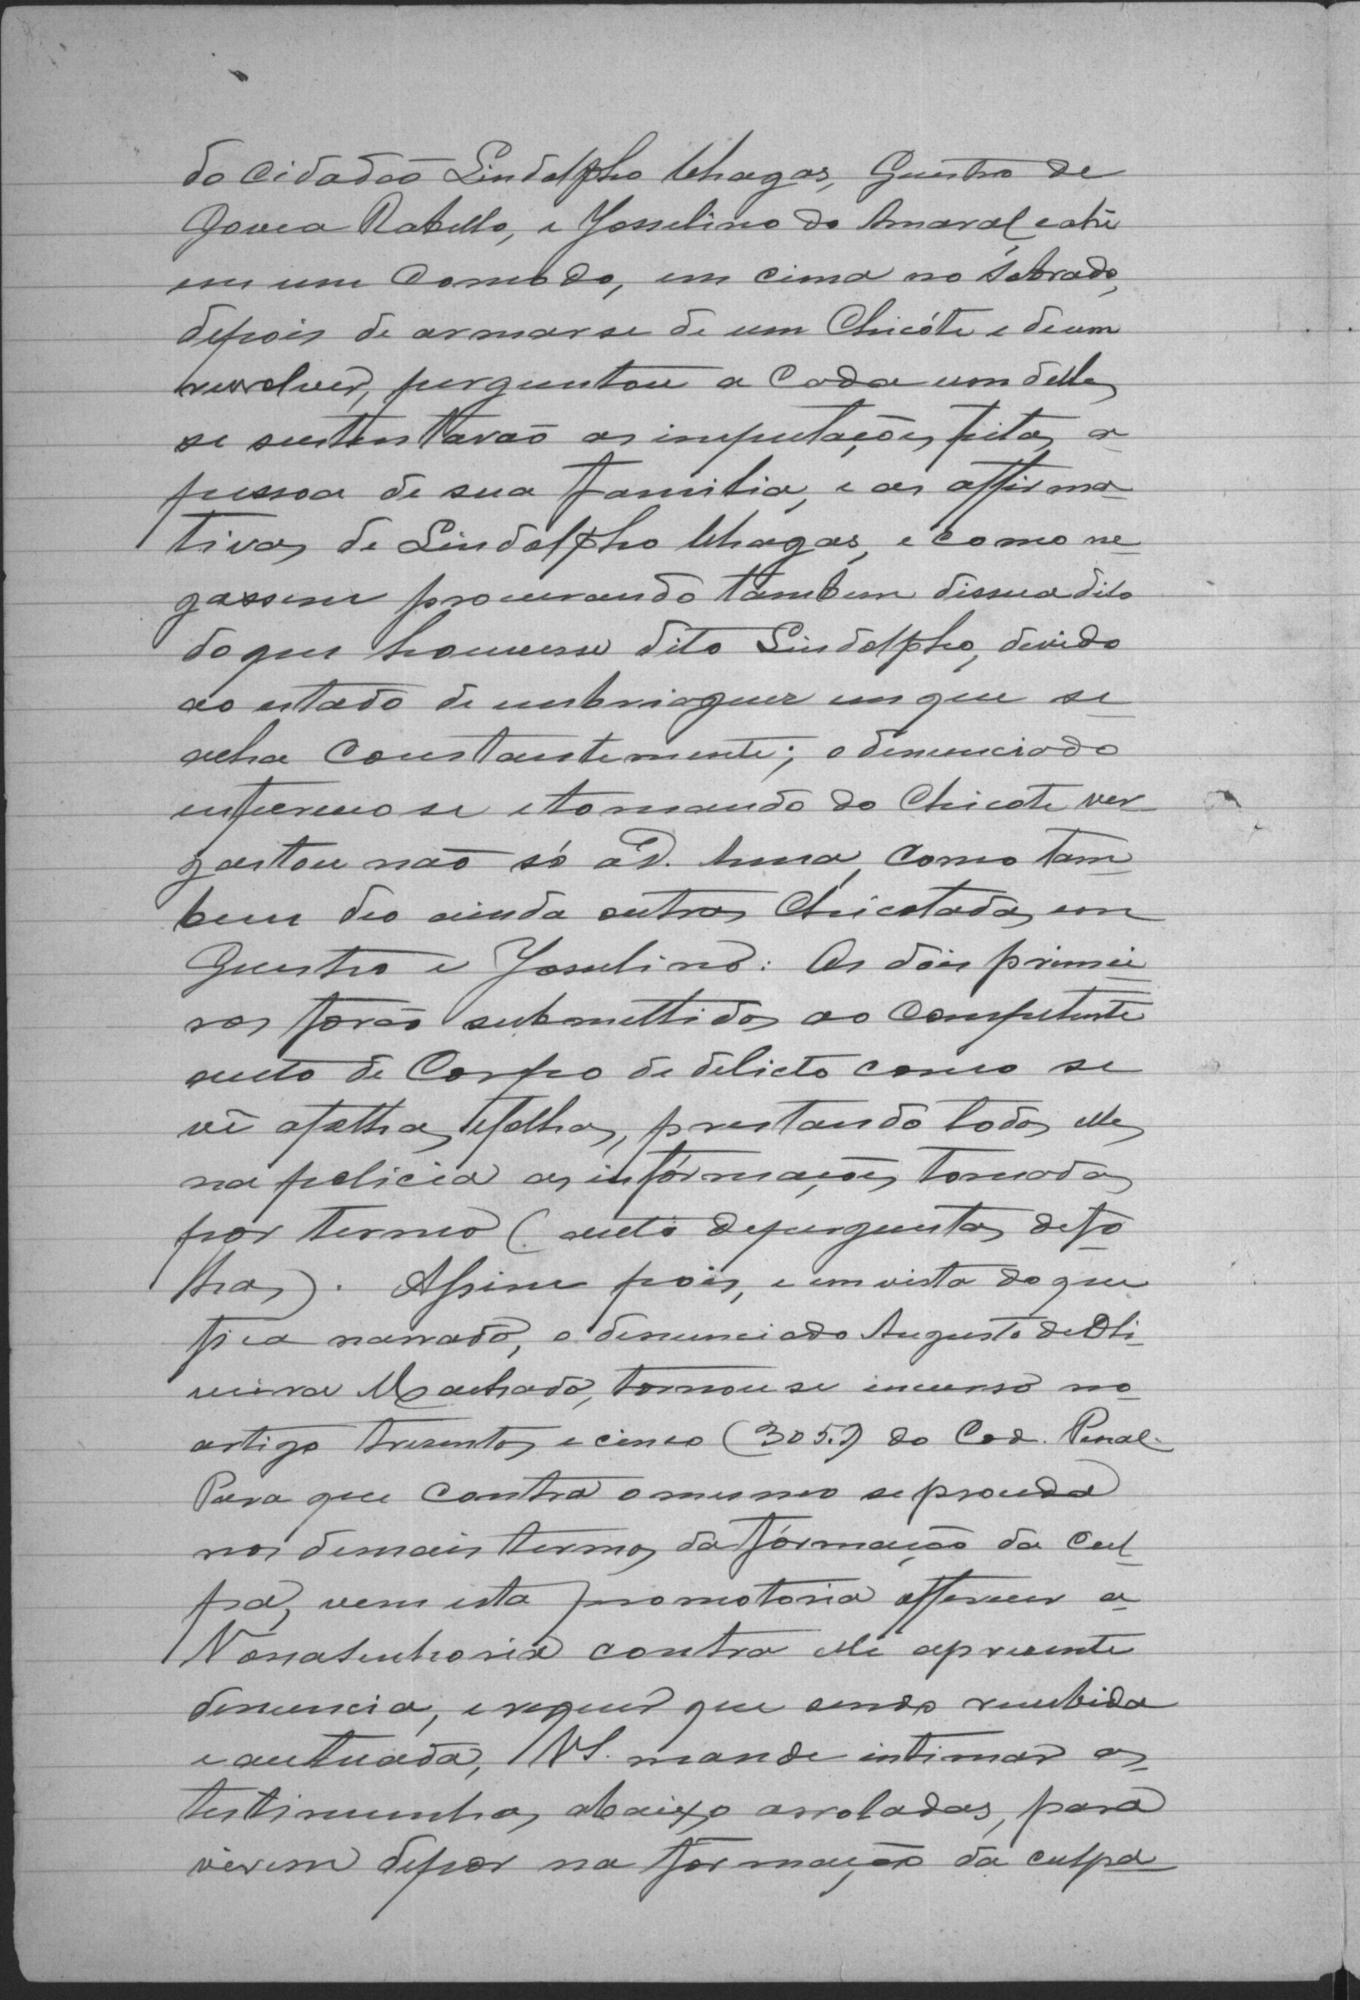 do cidadão Lindolpho Chagas, Guestro de
Govea Rabello, e Josselino do Amaral e ahi
em um Comodo, em cima no sobrado,
depois de armarse de um Chicóte e de um
revolver, perguntou a cada um delles
se sustentavão as imputações feitas a
pessoa de sua familia, e as affirma-
tivas de Lindolpho Chagas, e como ne-
gassem procurando tambem dissuadilo
do que houvesse dito Lindolpho, devido
ao estado de embriaguez em que se
acha constantemente; o denunciado
enfureceo se e tomando do Chicote ver-
gastou não só a D. Anna, como tam-
bem deo ainda outras Chicotadas em
Guestro e Josselino: Os dois primei-
ros forão submettidos ao competente
auto de Corpo de delicto como se
vê afolhas efolhas, prestando todos elles
na policia as informações tomadas
por termo (auto deperguntas defo-
lhas). Assim pois, e em vista do que
fica narrado, o denunciado Augusto de Oli-
veira Machado, tornou se incurso no
artigo tresentos e cinco (305.) do Cod. Penal.
Para que contra o mesmo se proceda
nos demais termos da formação da cul-
pa, vem esta promotoria offerecer a
Vossa Senhoria contra elle apresente
denuncia, e requer que sendo recebida
e autuada, VS. mande intimar as
testimunhas abaixo arroladas, para
virem depor na formação da culpa